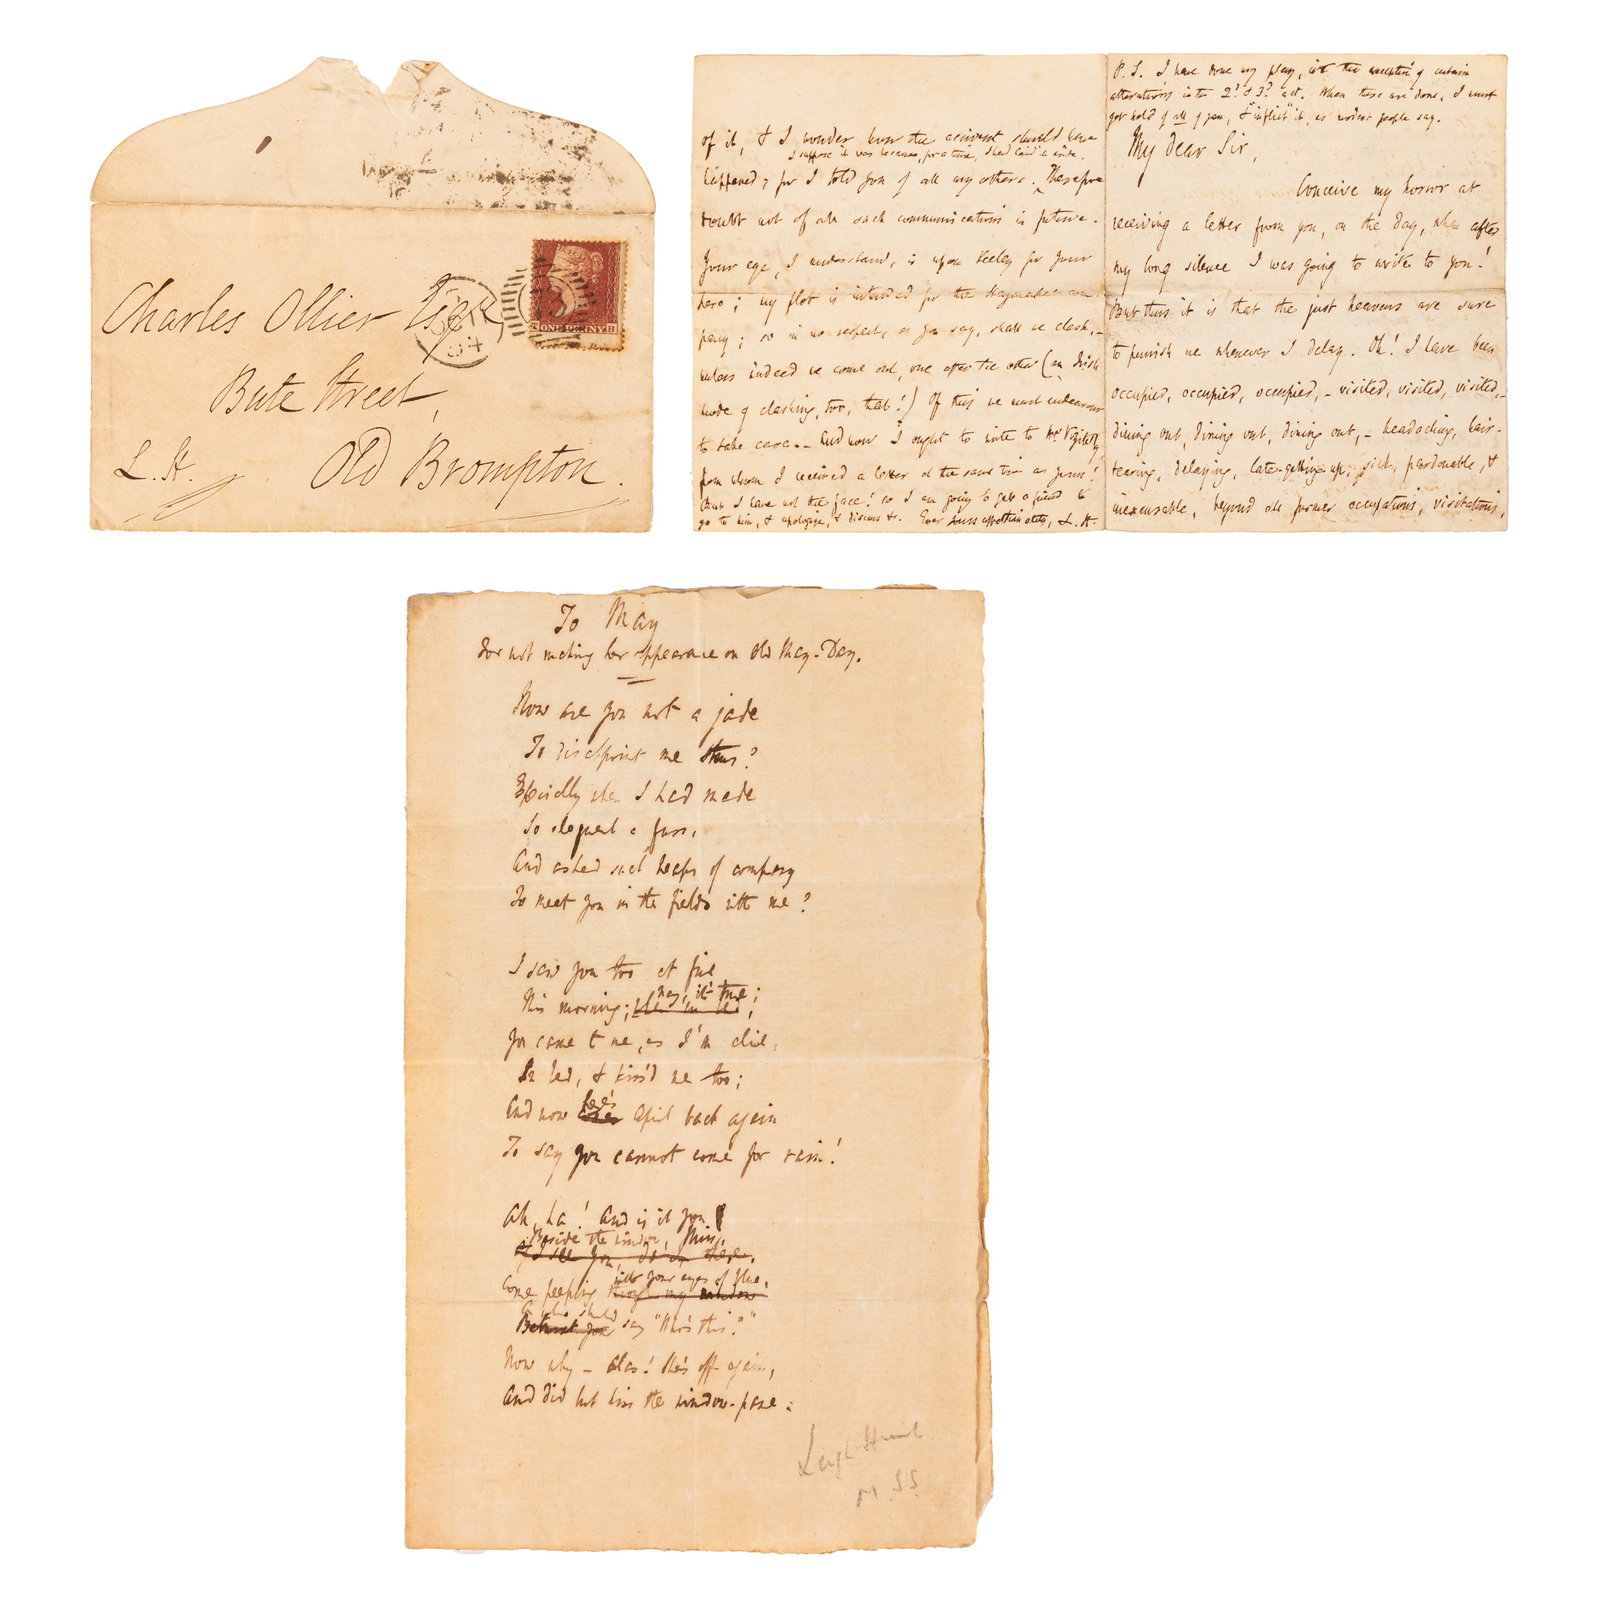 Charles Ollier Esqre,
Bute Street,
L. H. Old Brompton.
54
ONE PENNY
B
of it, & I wonder how the accident should have
I suppose it was because, for a time, I had laid it aside.
happened; for I told you of all my others. Therefore
doubt not of all such communications in future.
Your eye, I understand, is upon Keeley for your
hero; my plot is intended for the Haymarket com-
pany; so in no respect, as you say, shall we clash,-
unless indeed we come out, one after the other (an Irish
mode of clashing, too, that!) Of this we must endeavour
to take care. - And now I ought to write to Mr Vizetelly,
from whom I received a letter at the same time as yours!
But I have not the face! so I am going to get a friend to
go to him, & apologize, & discuss &c. Ever yours affectionately, L. H.
P. S. I have done my play, with the exception of certain
alterations in the 2d. & 3d. act. When these are done, I must
get hold of all of you, & "inflict" it, as modest people say.
My dear Sir,
Conceive my horror at
receiving a letter from you, on the day, when after
my long silence I was going to write to you!
But thus it is that the just heavens are sure
to punish me whenever I delay. Oh! I have been
occupied, occupied, occupied, - visited, visited, visited, -
dining out, dining out, dining out, - headaching, hair-
tearing, delaying, late-getting-up, sick, pardonable, &
inexcusable, beyond all former occupations, visitations,
To May
For not making her appearance on Old May-Day.
Now are you not a jade
To disappoint me thus?
Especially when I had made
So eloquent a fuss,
And asked such heaps of company
To meet you in the fields with me?
I saw you too at five
nay, it's true;
This morning;
You came to me, as I'm alive,
In bed, & kiss'd me too;
here's
And now April back again
To say you cannot come for rain!
Ah, ha! And is it you
Beside the window, Miss,
I see you,
into your eyes of blue,
Come peeping through my window
As who should
Betwixt your say "Who's this?"
Now why - alas! she's off again,
And did but kiss the window-pane.
Leigh Hunt
MSS.